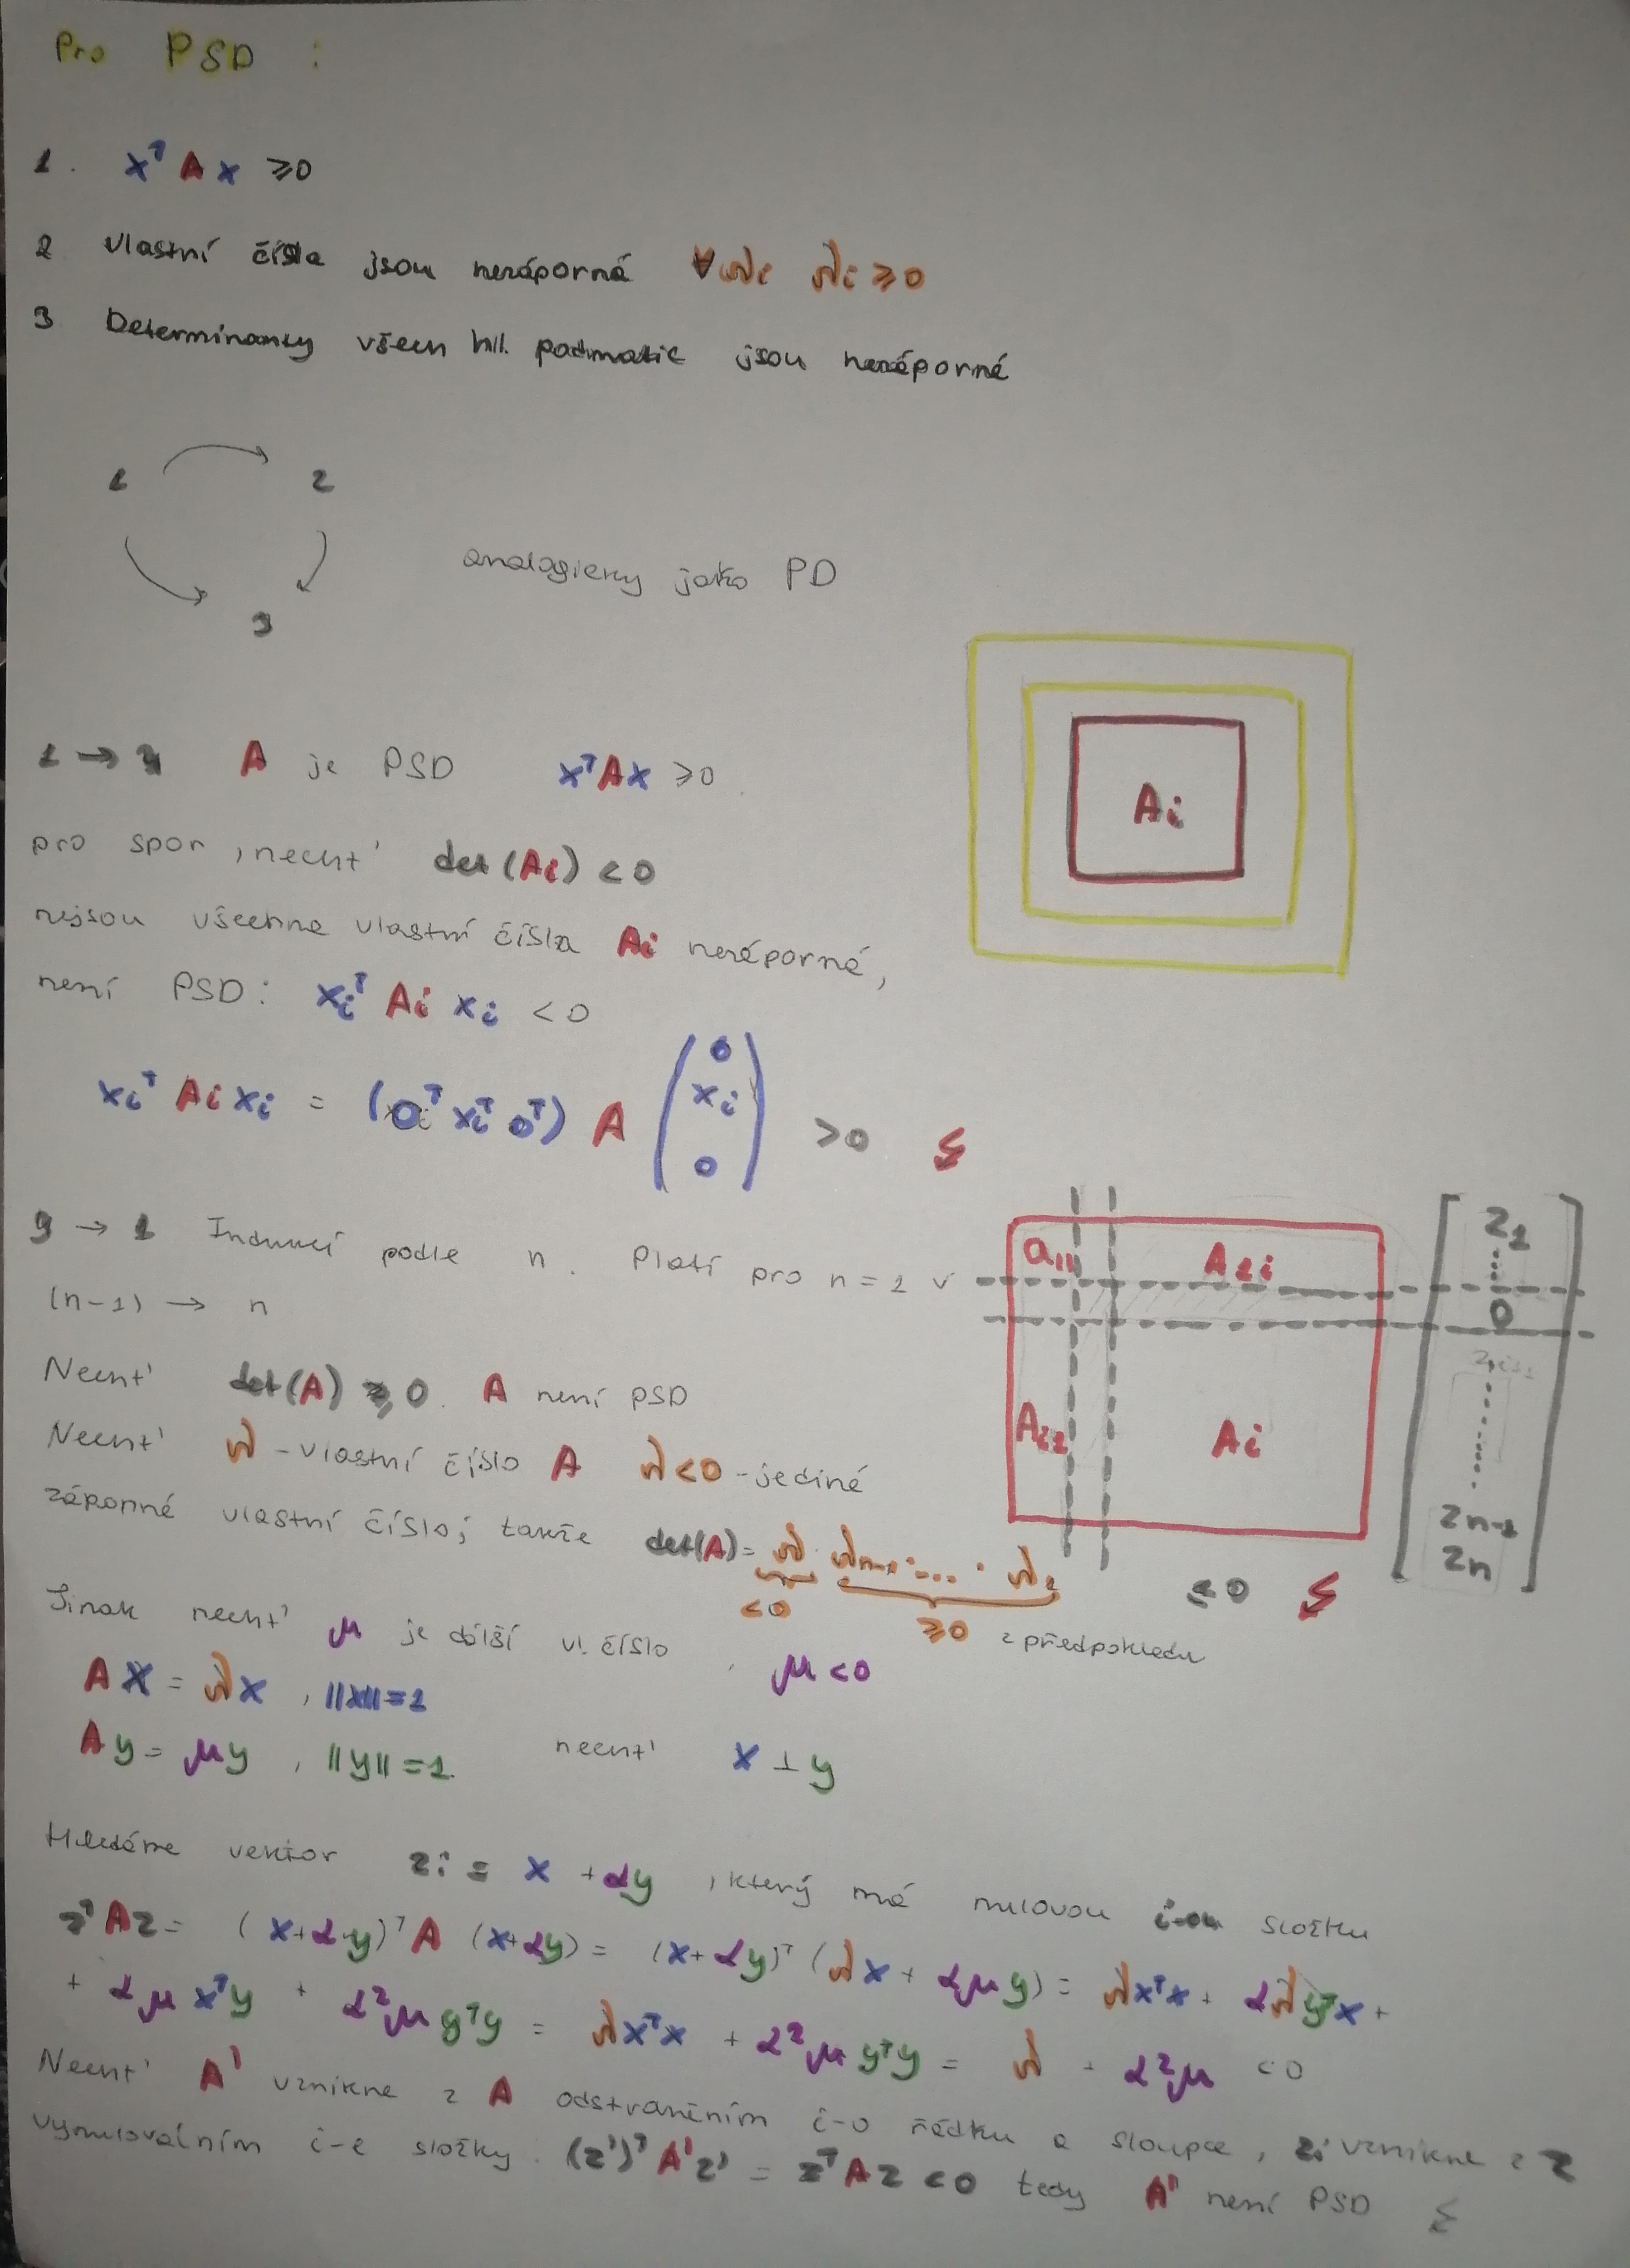 Pro PSD :
1. xᵀ A x ≥0
2 Vlastní čísla jsou nezáporná ∀λi λi ≥0
3 Determinanty všech hl. podmatic jsou nezáporné
1 2
analogicky jako PD
3
1 → 3 A je PSD xᵀAx ≥0
Ai
pro spor, nechť det (Ai) < 0
nejsou všechna vlastní čísla Ai nezáporná,
není PSD: xiᵀ Ai xi < 0
xiᵀ Ai xi = (0ᵀ xiᵀ 0ᵀ) A (0 xi 0) >0
3 → 1 Indukcí podle n. Platí pro n=1 v
a11 A1i
(n-1) → n
Nechť det(A) ≥ 0. A není PSD
Ai1 Ai
z1 0 zi+1 zn-1 zn
Nechť λ - vlastní číslo A λ<0 - jediné
záporné vlastní číslo; takže det(A) = λ · λn-1 · ... · λ1 ≤0
<0 ≥0 z předpokladu
Jinak nechť μ je další vl. číslo, μ<0
Ax = λx , ||x||=1
Ay = μy , ||y||=1 nechť x ⊥ y
Hledáme vektor z := x + αy , který má nulovou i-ou složku
zᵀAz = (x+αy)ᵀ A (x+αy) = (x+αy)ᵀ (λx + αμy) = λxᵀx + αλyᵀx +
+ αμxᵀy + α²μyᵀy = λxᵀx + α²μyᵀy = λ + α²μ <0
Nechť A' vznikne z A odstraněním i-o řádku a sloupce, z' vznikne z z
vynulováním i-é složky. (z')ᵀA'z' = zᵀAz <0 tedy A' není PSD